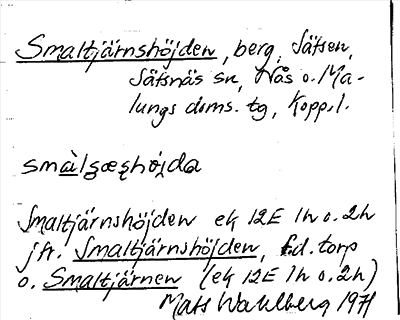 Smaltjärnshöjden, berg, Säfsen,
Säfsnäs sn, Nås o. Ma-
lungs doms. tg, Kopp. l.
smàlʂæʂhöjda
Smaltjärnshöjden ek 12E 1h o. 2h
jfr. Smaltjärnshöjden, f.d. torp
o. Smaltjärnen (ek 12E 1h o. 2h)
Mats Wahlberg 1971